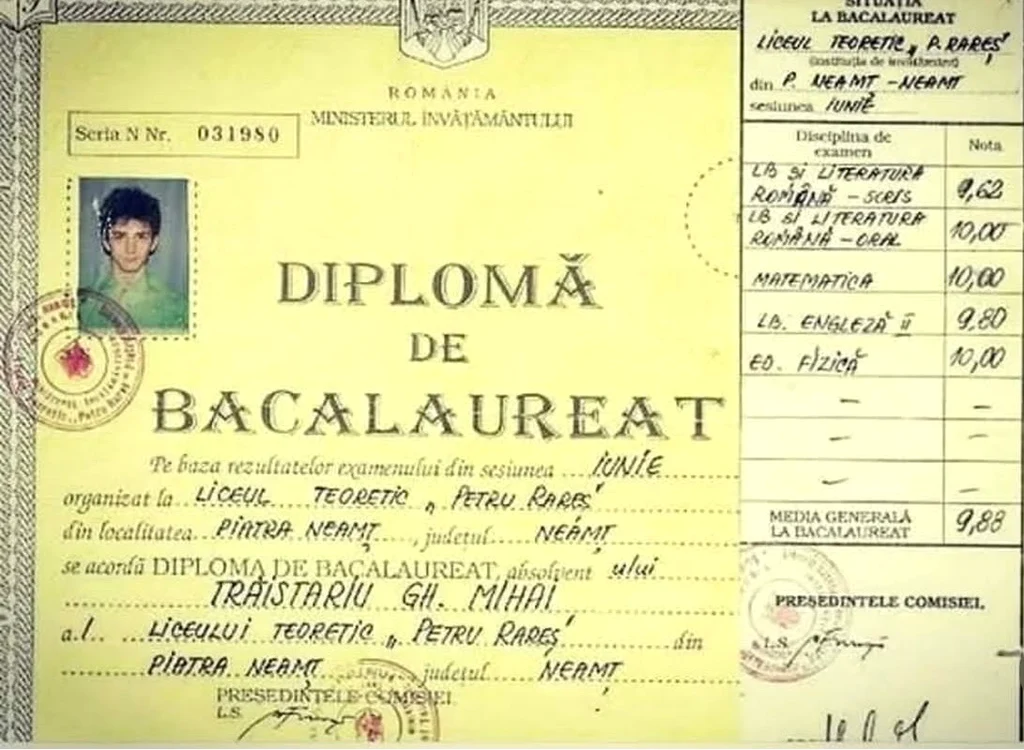 ROMÂNIA
MINISTERUL ÎNVĂŢĂMÂNTULUI
Seria N Nr. 031980
DIPLOMĂ
DE
BACALAUREAT
Pe baza rezultatelor examenului din sesiunea IUNIE
organizat la LICEUL TEORETIC „PETRU RAREŞ"
din localitatea PIATRA NEAMŢ, judeţul NEAMŢ
se acordă DIPLOMA DE BACALAUREAT, absolvent ului
TRĂISTARIU GH. MIHAI
al LICEULUI TEORETIC „PETRU RAREŞ" din
PIATRA NEAMŢ judeţul NEAMŢ
PREŞEDINTELE COMISIEI,
L.S.
SITUAŢIA
LA BACALAUREAT
LICEUL TEORETIC „P. RAREŞ"
(instituţia de învăţământ)
din P. NEAMŢ - NEAMŢ
sesiunea IUNIE
Disciplina de examen Nota
LB ŞI LITERATURA
ROMÂNĂ - SCRIS 9,62
LB ŞI LITERATURA
ROMÂNĂ - ORAL 10,00
MATEMATICA 10,00
LB. ENGLEZĂ II 9,80
ED. FIZICĂ 10,00
— —
— —
— —
MEDIA GENERALĂ
LA BACALAUREAT 9,88
PREŞEDINTELE COMISIEI,
L.S.